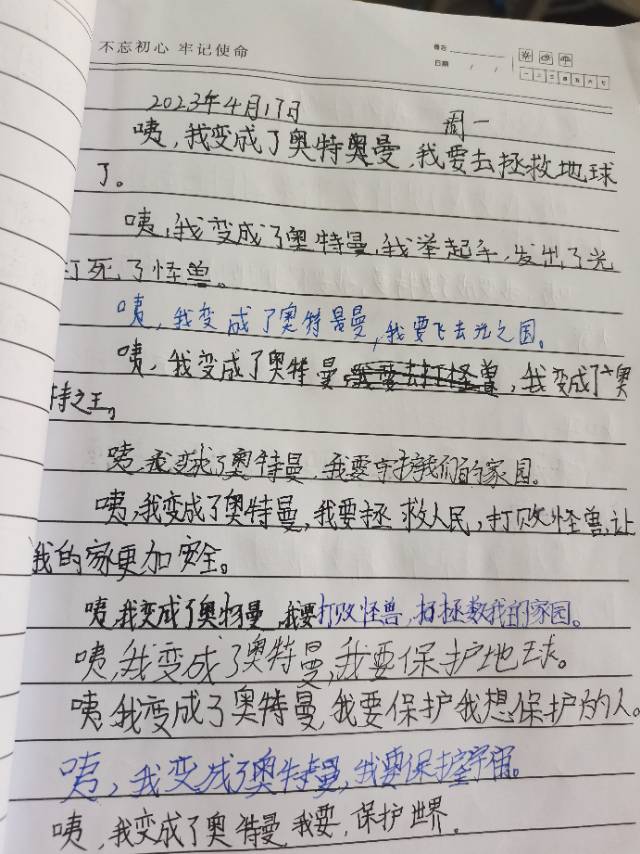 不忘初心 牢记使命
日期 / /
一 二 三 四 五 六 七
2023年4月17日 周一
咦,我变成了奥特奥曼,我要去拯救地球
了。
咦,我变成了奥特曼,我举起手,发出了光
打死了怪兽。
咦,我变成了奥特曼曼,我要飞去光之国。
咦,我变成了奥特曼,我要去打怪兽,我变成了奥
特之王。
咦,我变成了奥特曼,我要守护我们的家园。
咦,我变成了奥特曼,我要拯救人民,打败怪兽,让
我的家更加安全。
咦,我变成了奥特曼,我要打败怪兽,拯救我的家园。
咦,我变成了奥特曼,我要保护地球。
咦,我变成了奥特曼,我要保护我想保护的人。
咦,我变成了奥特曼,我要保护宇宙。
咦,我变成了奥特曼,我要,保护世界。